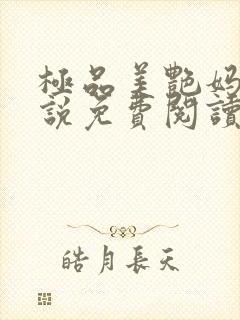 極品美艷妈
說免費閱讀
皓月長天